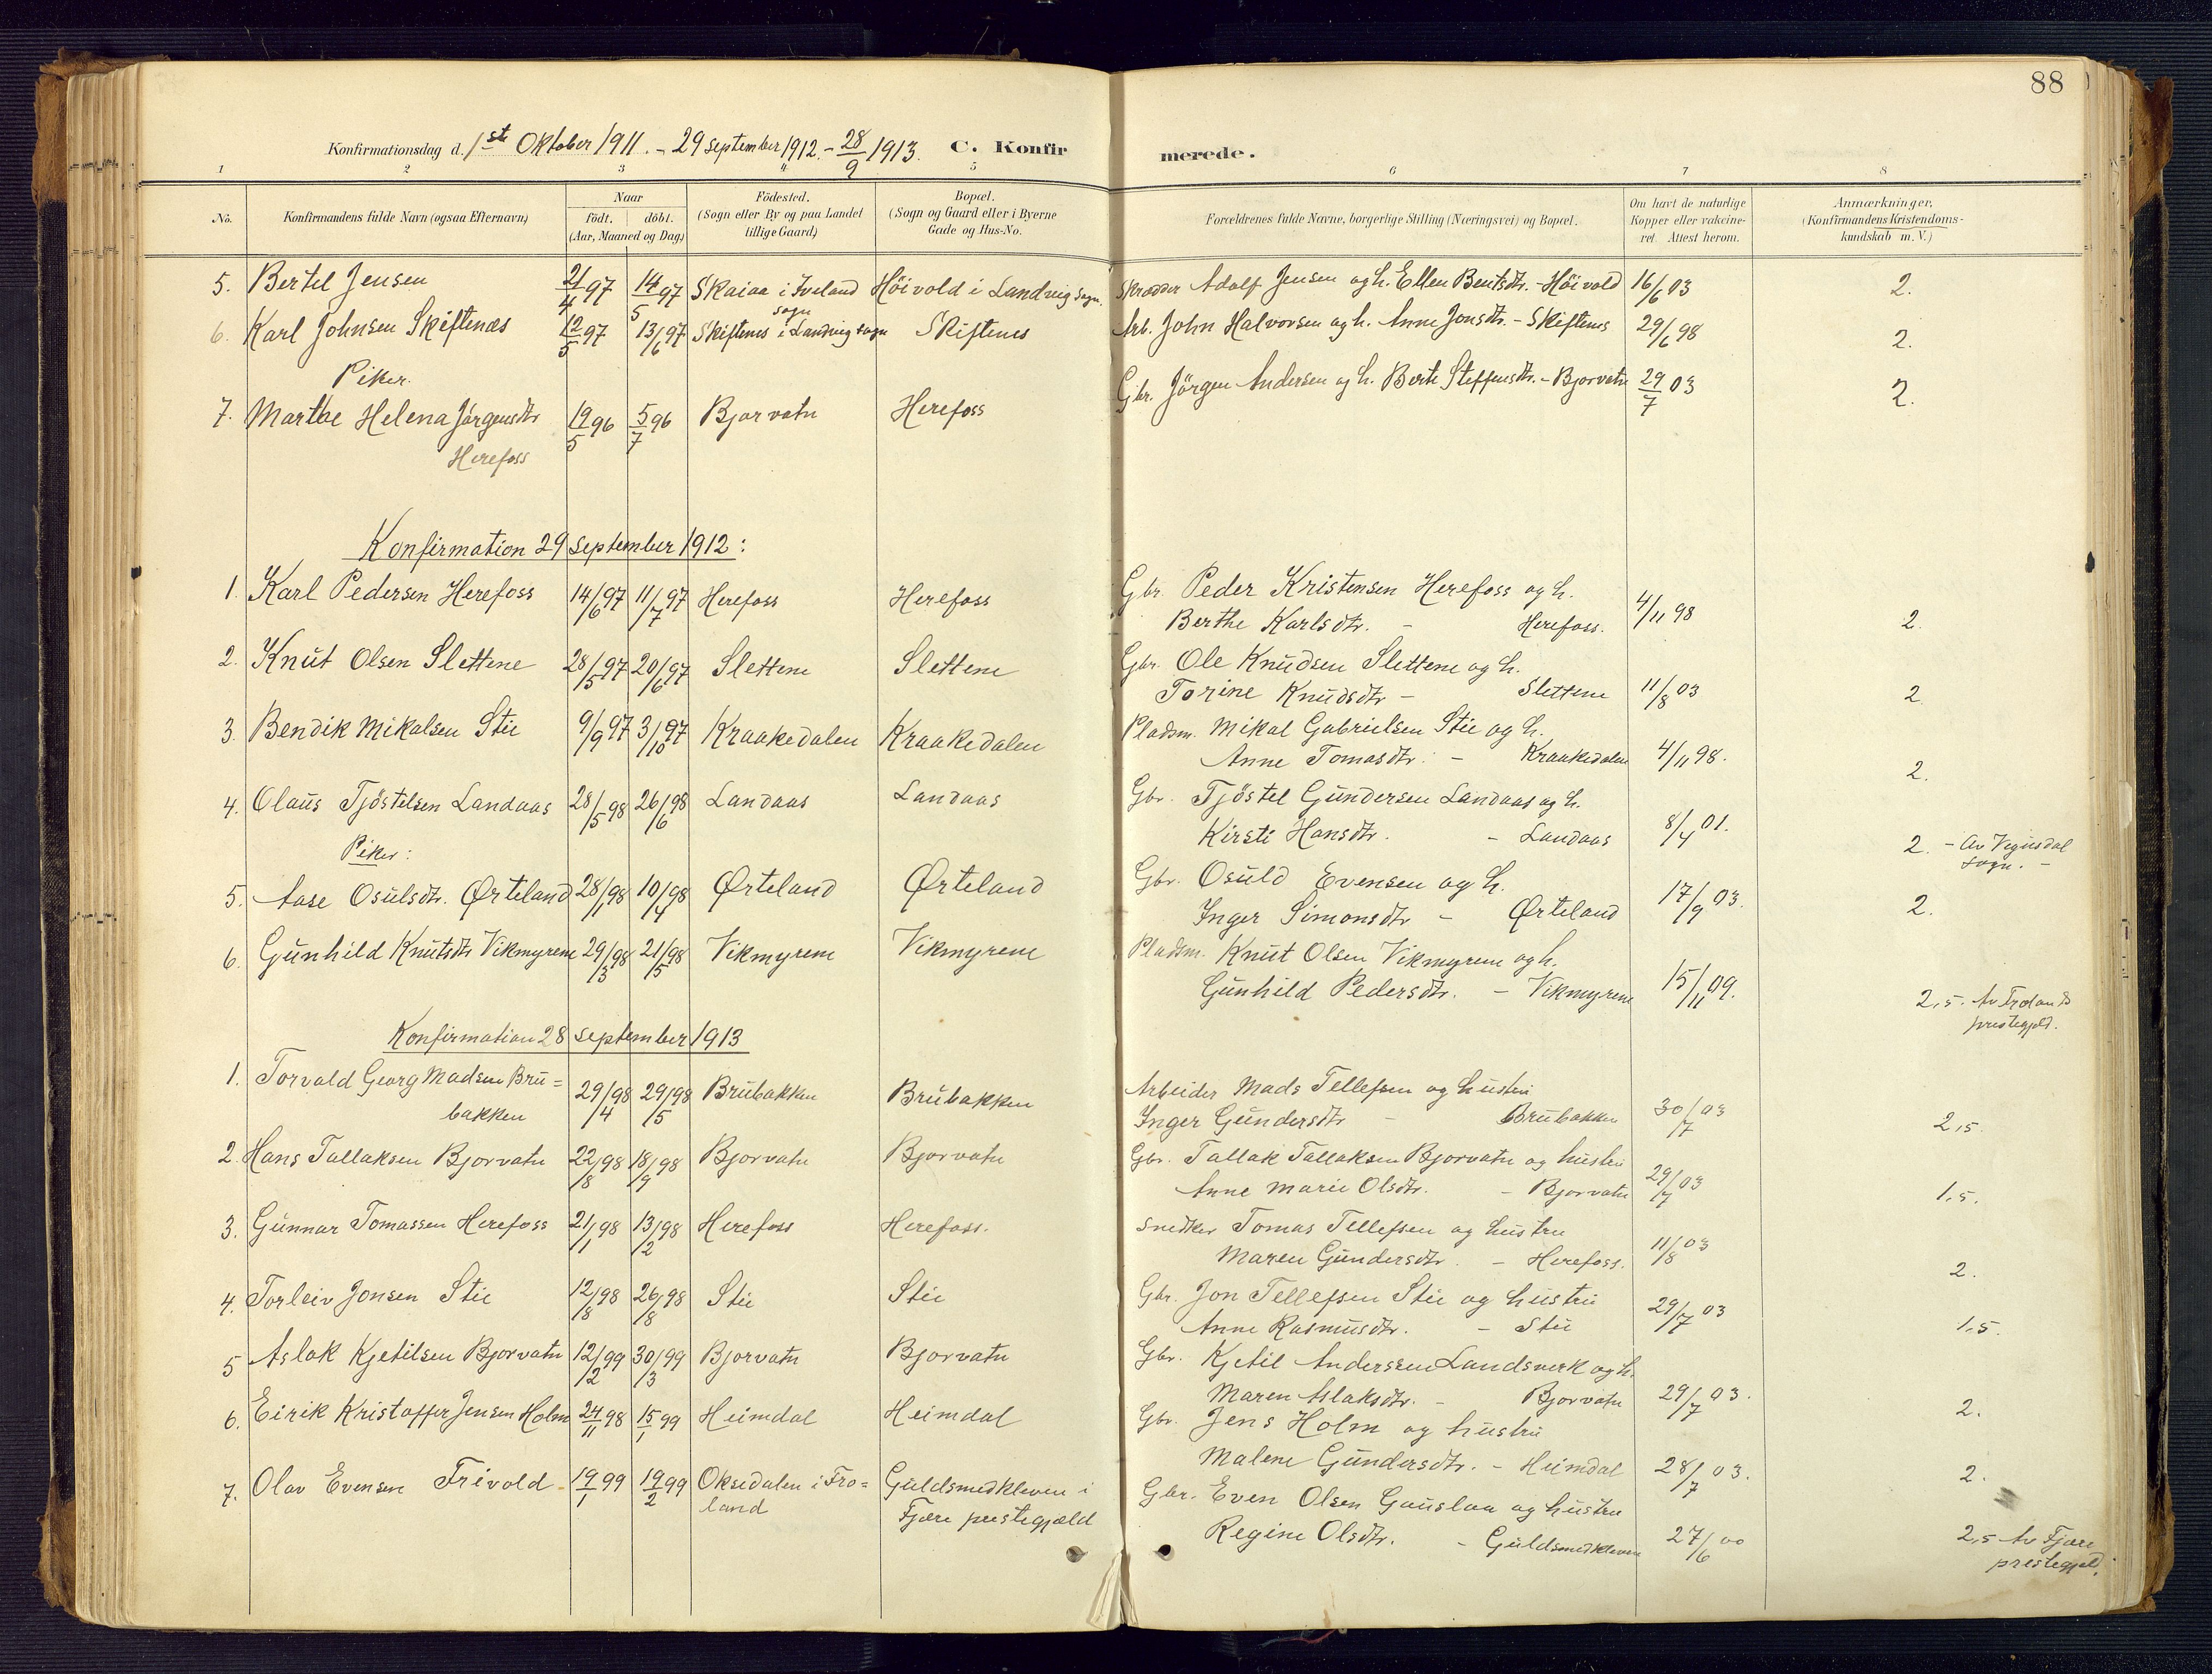 88
Konfirmationsdag d. 1ste Oktober 1911. - 29 september 1912. - 28/9 1913. C. Konfirmerede.
1 2 3 4 5 6 7 8
No. Konfirmandens fulde Navn (ogsaa Efternavn) Naar födt. döbt. (Aar, Maaned og Dag) Födested. (Sogn eller By og paa Landet tillige Gaard) Bopæl. (Sogn og Gaard eller i Byerne Gade og Hus-No. Forældrenes fulde Navne, borgerlige Stilling (Næringsvei) og Bopæl. Om havt de naturlige Kopper eller vakcineret. Attest herom. Anmærkninger. (Konfirmandens Kristendomskundskab m. V.)
5. Bertel Jensen 21/4 97 14/5 97 Skaiaa i Iveland sogn Höivold i Landvig sogn. Skrædder Adolf Jensen og h. Ellen Bentsdtr. - Höivold 16/6 03 2.
6. Karl Johnsen Skiftenes 12/5 97 13/6 97 Skiftenes i Landvig sogn Skiftenes Arb. John Halvorsen og h. Anne Jonsdtr. - Skiftenes 29/6 98 2.
Piker.
7. Marthe Helena Jörgensdtr 19/5 96 5/7 96 Bjorvatn Herefoss Gbr. Jörgen Andersen og h. Berte Steffensdtr. - Bjorvatn 29/7 03 2.
Herefoss
Konfirmation 29 september 1912:
1. Karl Pedersen Herefoss 14/6 97 11/7 97 Herefoss Herefoss Gbr. Peder Kristensen Herefoss og h.
Berthe Karlsdtr. - Herefoss. 4/11 98 2.
2. Knut Olsen Slettene 28/5 97 20/6 97 Slettene Slettene Gbr. Ole Knudsen Slettene og h.
Torine Knudsdtr - Slettene 11/8 03 2
3. Bendik Mikalsen Stie 9/9 97 3/10 97 Kraakedalen Kraakedalen Pladsm. Mikal Gabrielsen Stie og h.
Anne Tomasdtr. - Kraakedalen 4/11 98. 2.
4. Olaus Tjöstelsen Landaas 28/5 98 26/6 98 Landaas Landaas Gbr. Tjöstel Gundersen Landaas og h.
Kirsti Hansdtr. - Landaas 8/4 01. 2. - Av Vegusdal sogn. -
Piker:
5. Aase Osulsdtr. Ørteland 28/1 98 10/4 98 Ørteland Ørteland Gbr. Osuld Evensen og h.
Inger Simonsdtr - Ørteland 17/9 03. 2.
6. Gunhild Knutsdtr Vikmyrene 29/3 98 21/5 98 Vikmyrene Vikmyrene Pladsm. Knut Olsen Vikmyrene og h.
Gunhild Pedersdtr. - Vikmyrene 15/11 09. 2,5. Av Frolands prestegjeld.
Konfirmation 28 september 1913
1. Torvald Georg Madsen Bru= 29/4 98 29/5 98 Brubakken Brubakken Arbeider Mads Tellefsen og hustru
bakken Inger Gundersdtr - Brubakken 30/7 03 2,5.
2. Hans Tallaksen Bjorvatn 22/8 98 18/9 98 Bjorvatn Bjorvatn Gbr. Tallak Tallaksen Bjorvatn og hustru
Anne Marie Olsdtr. - Bjorvatn 29/7 03 1,5.
3. Gunnar Tomassen Herefoss 21/1 98 13/2 98 Herefoss Herefoss. Snedker Tomas Tellefsen og hustru
Maren Gundersdtr. - Herefoss. 11/8 03 2.
4. Torleiv Jonsen Stie 12/8 98 26/8 98 Stie Stie Gbr. Jon Tellefsen Stie og hustru
Anne Rasmusdtr. - Stie 29/7 03 1,5.
5 Aslak Kjetilsen Bjorvatn 12/2 99 30/3 99 Bjorvatn Bjorvatn Gbr. Kjetil Anderssen Landsverk og h.
Maren Aslaksdtr. - Bjorvatn 29/7 03. 2.
6. Eirik Kristoffer Jensen Holm 24/11 98 15/1 99 Heimdal Heimdal Gbr. Jens Holm og hustru
Malene Gundersdtr. - Heimdal 28/7 03. 2.
7. Olav Evensen Trivold 19/1 99 19/2 99 Oksedalen i Fro= Guldsmedkleven i Gbr. Even Olsen Gauslaa og hustru
land Fjære prestegjæld Regine Olsdtr. - Guldsmedkleven 27/6 00 2,5 Av Fjære prestegjeld.